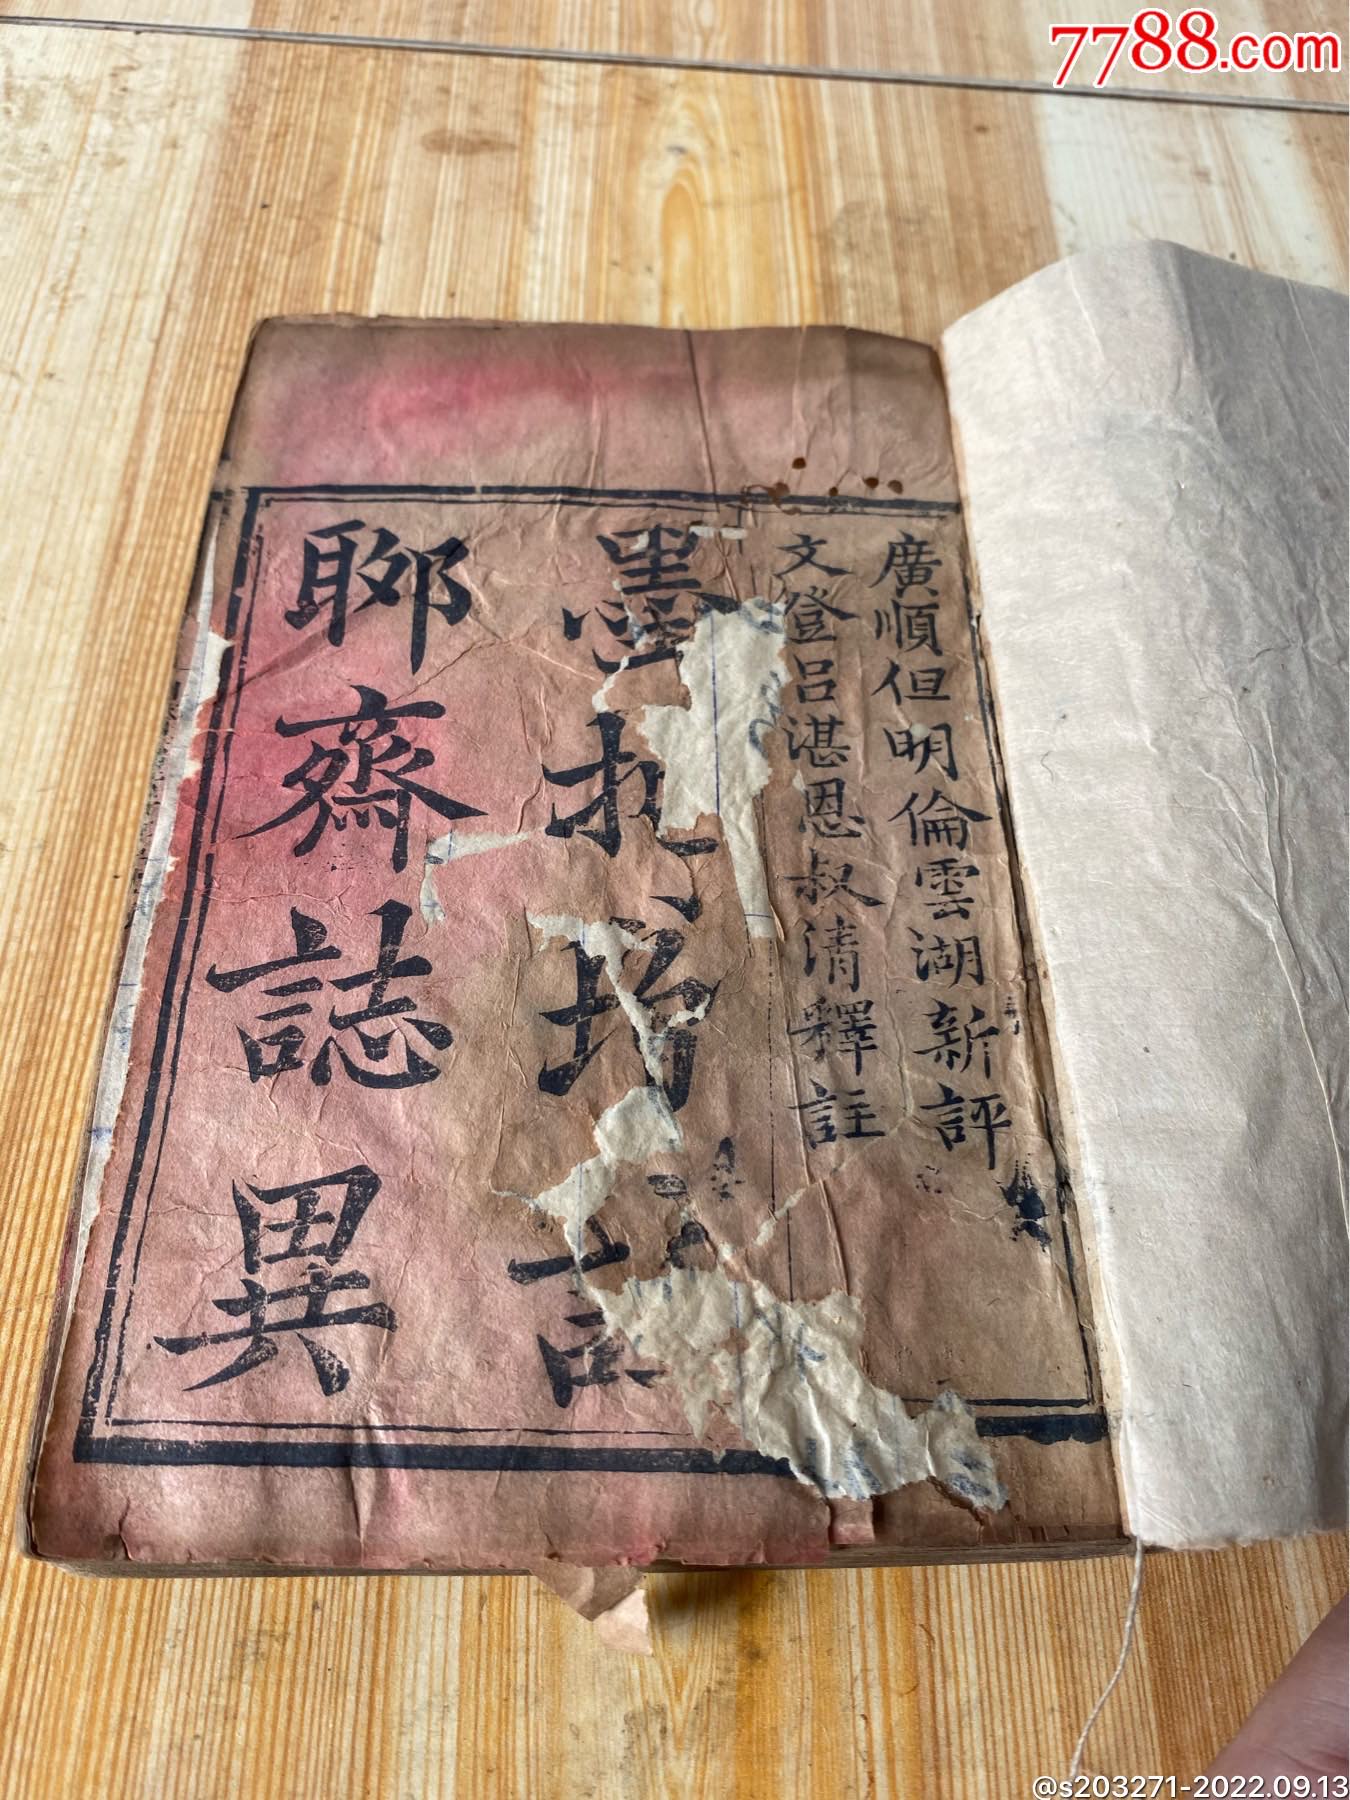 7788.com
廣順但明倫雲湖新評
文登呂湛恩叔清釋註
墨批增
聊齋誌異
@s203271-2022.09.13